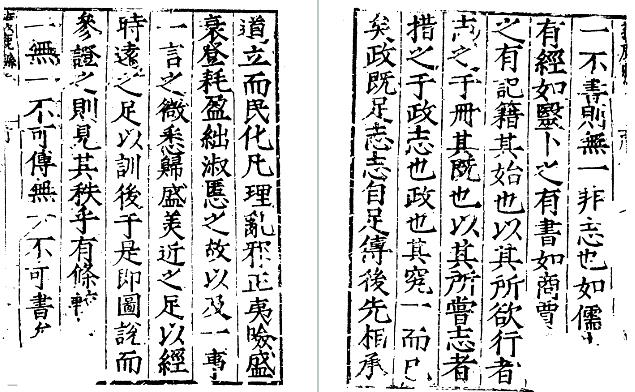 一不書則無一非志也如儒
有經如醫卜之有書如商賈
之有記籍其始也以其所欲行者
志之于冊其既也以其所嘗志者
措之于政志也政也其究一而已
矣政既足志志自足傳後先相承
道立而民化凡理亂邪正夷險盛
衰登耗盈絀淑慝之故以及一事
一言之微悉歸盛美近之足以經
時遠之足以訓後于是即圖說而
參證之則見其秩乎有條
一無一不可傳無一不可書